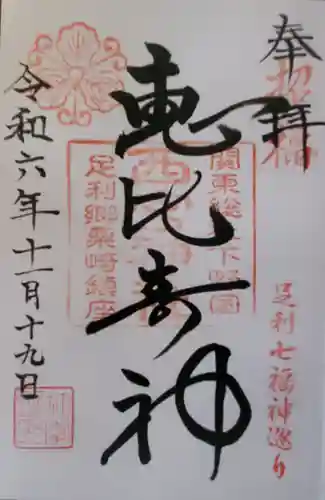 奉拝
招福
恵比寿神
関東総
下野国
足利郷栗崎鎮座
足利七福神巡り
令和六年十一月十九日